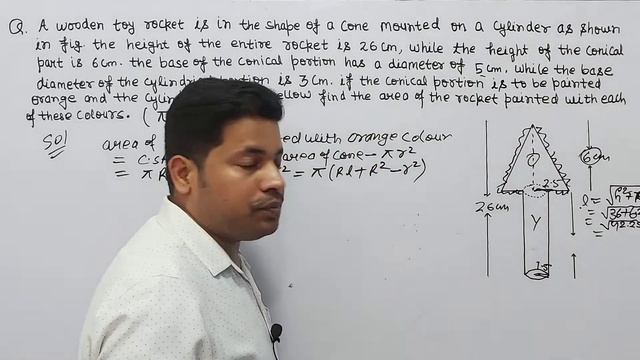 Q. A wooden toy rocket is in the shape of a cone mounted on a cylinder as shown
in fig. the height of the entire rocket is 26cm, while the height of the conical
part is 6cm. the base of the conical portion has a diameter of 5cm, while the base
diameter of the portion is 3cm. if the conical portion is to be painted
orange and the find the area of the rocket painted with each
of these colours. (
Sol area of with orange colour
= area of cone - πr²
= π = π(Rl+R²-r²)
O
6cm
2.5
26cm
Y
l =
=
=
=
1.5